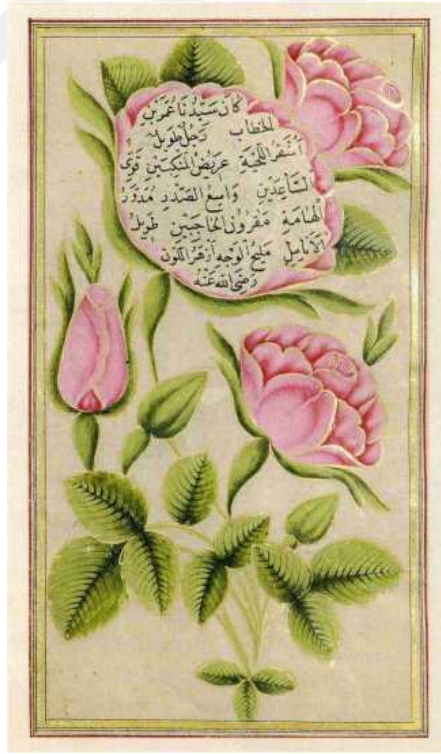 كَانَ سَيِّدُنَا عُمَرُ بْنُ
الْخَطَّابِ رَجُلٌ طَوِيلٌ
أَشْقَرُ اللِّحْيَةِ عَرِيضُ الْمَنْكِبَيْنِ قَوِيُّ
السَّاعِدَيْنِ وَاسِعُ الصَّدْرِ مُدَوَّرُ
الْهَامَةِ مَقْرُونُ الْحَاجِبَيْنِ طَوِيلُ
الْأَنَامِلِ مَلِيحُ الْوَجْهِ أَزْهَرُ اللَّوْنِ
رَضِيَ اللهُ عَنْهُ